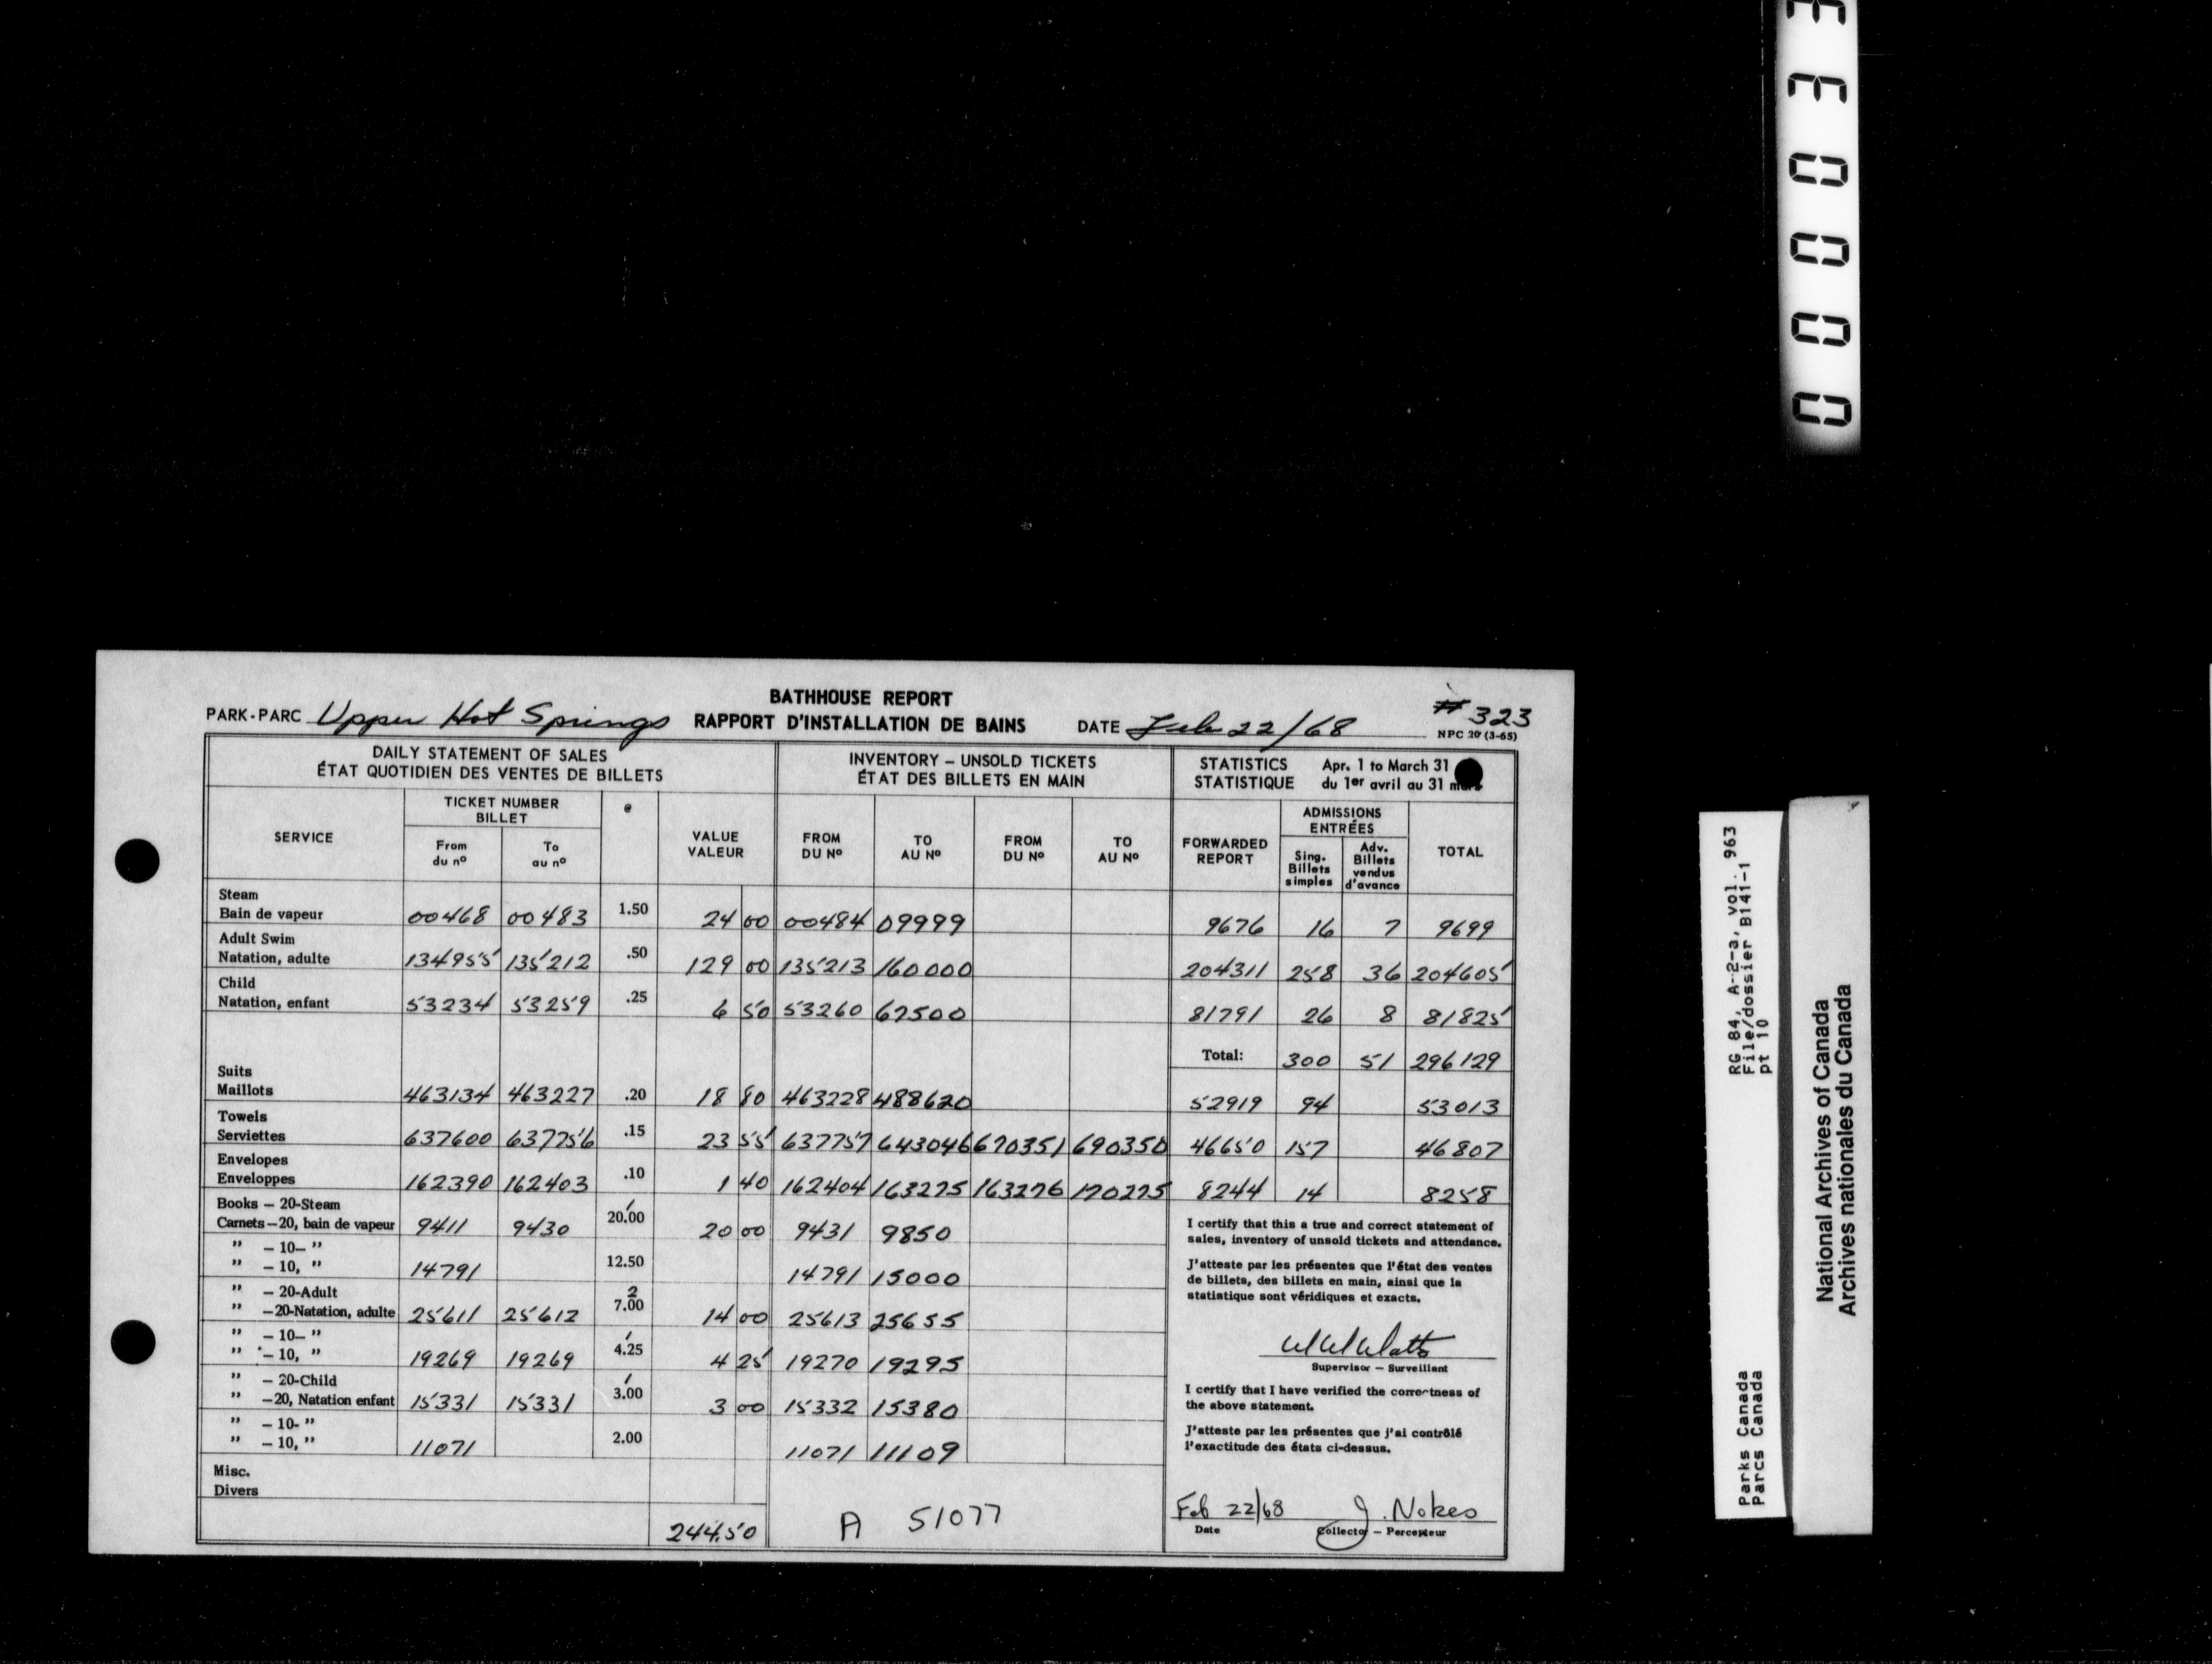 BATHHOUSE REPORT
PARK-PARC Upper Hot Springs RAPPORT D'INSTALLATION DE BAINS DATE Feb 22/68 # 323
NPC 20 (3-65)
DAILY STATEMENT OF SALES
ÉTAT QUOTIDIEN DES VENTES DE BILLETS
INVENTORY – UNSOLD TICKETS
ÉTAT DES BILLETS EN MAIN
STATISTICS Apr. 1 to March 31
STATISTIQUE du 1er avril au 31 mars
SERVICE
TICKET NUMBER
BILLET
From
du nº
To
au nº
@
VALUE
VALEUR
FROM
DU Nº
TO
AU Nº
FROM
DU Nº
TO
AU Nº
FORWARDED
REPORT
ADMISSIONS
ENTRÉES
Sing.
Billets
simples
Adv.
Billets
vendus
d'avance
TOTAL
Steam
Bain de vapeur 00468 00483 1.50 24 00 00484 09999 9676 16 7 9699
Adult Swim
Natation, adulte 134955 135212 .50 129 00 135213 160000 204311 258 36 204605
Child
Natation, enfant 53234 53259 .25 6 50 53260 62500 81791 26 8 81825
Total: 300 51 296129
Suits
Maillots 463134 463227 .20 18 80 463228 488620 52919 94 53013
Towels
Serviettes 637600 637756 .15 23 55 637757 643046 670351 690350 46650 157 46807
Envelopes
Enveloppes 162390 162403 .10 1 40 162404 163275 163276 170275 8244 14 8258
Books – 20-Steam 1
Carnets – 20, bain de vapeur 9411 9430 20.00 20 00 9431 9850
" – 10– "
" – 10, " 14791 12.50 14791 15000
" – 20-Adult 2
" – 20-Natation, adulte 25611 25612 7.00 14 00 25613 25655
" – 10– " 1
" – 10, " 19269 19269 4.25 4 25 19270 19295
" – 20-Child 1
" – 20, Natation enfant 15331 15331 3.00 3 00 15332 15380
" – 10- "
" – 10, " 11071 2.00 11071 11109
Misc.
Divers
244.50
A 51077
I certify that this a true and correct statement of
sales, inventory of unsold tickets and attendance.
J'atteste par les présentes que l'état des ventes
de billets, des billets en main, ainsi que la
statistique sont véridiques et exacts.
Supervisor – Surveillant
I certify that I have verified the correctness of
the above statement.
J'atteste par les présentes que j'ai contrôlé
l'exactitude des états ci-dessus.
Feb 22/68 J. Nokes
Date Collector – Percepteur
RG 84, A-2-a, vol. 963
File/dossier B141-1
pt 10
Parks Canada
Parcs Canada
National Archives of Canada
Archives nationales du Canada